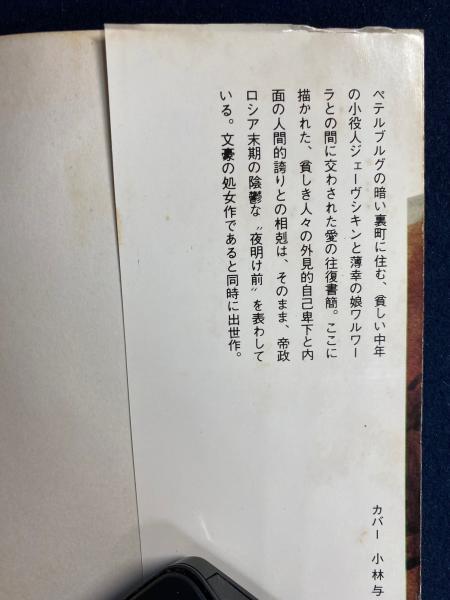 ペテルブルグの暗い裏町に住む、貧しい中年
の小役人ジェーヴシキンと薄幸の娘ワルワー
ラとの間に交わされた愛の往復書簡。ここに
描かれた、貧しき人々の外見的自己卑下と内
面の人間的誇りとの相剋は、そのまま、帝政
ロシア末期の陰鬱な〝夜明け前〟を表わして
いる。文豪の処女作であると同時に出世作。
カバー 小林与